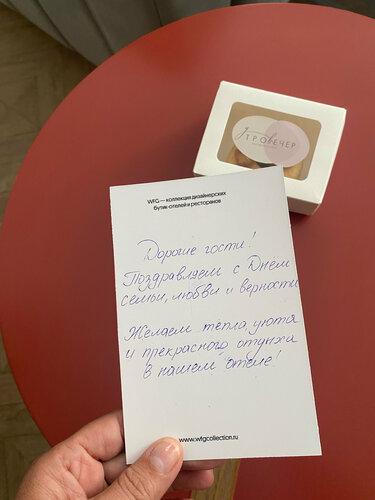 УТРОВЕЧЕР
WFG — коллекция дизайнерских
бутик-отелей и ресторанов
Дорогие гости!
Поздравляем с Днём
семьи, любви и верности
Желаем тепла, уюта
и прекрасного отдыха
в нашем отеле!
www.wfgcollection.ru